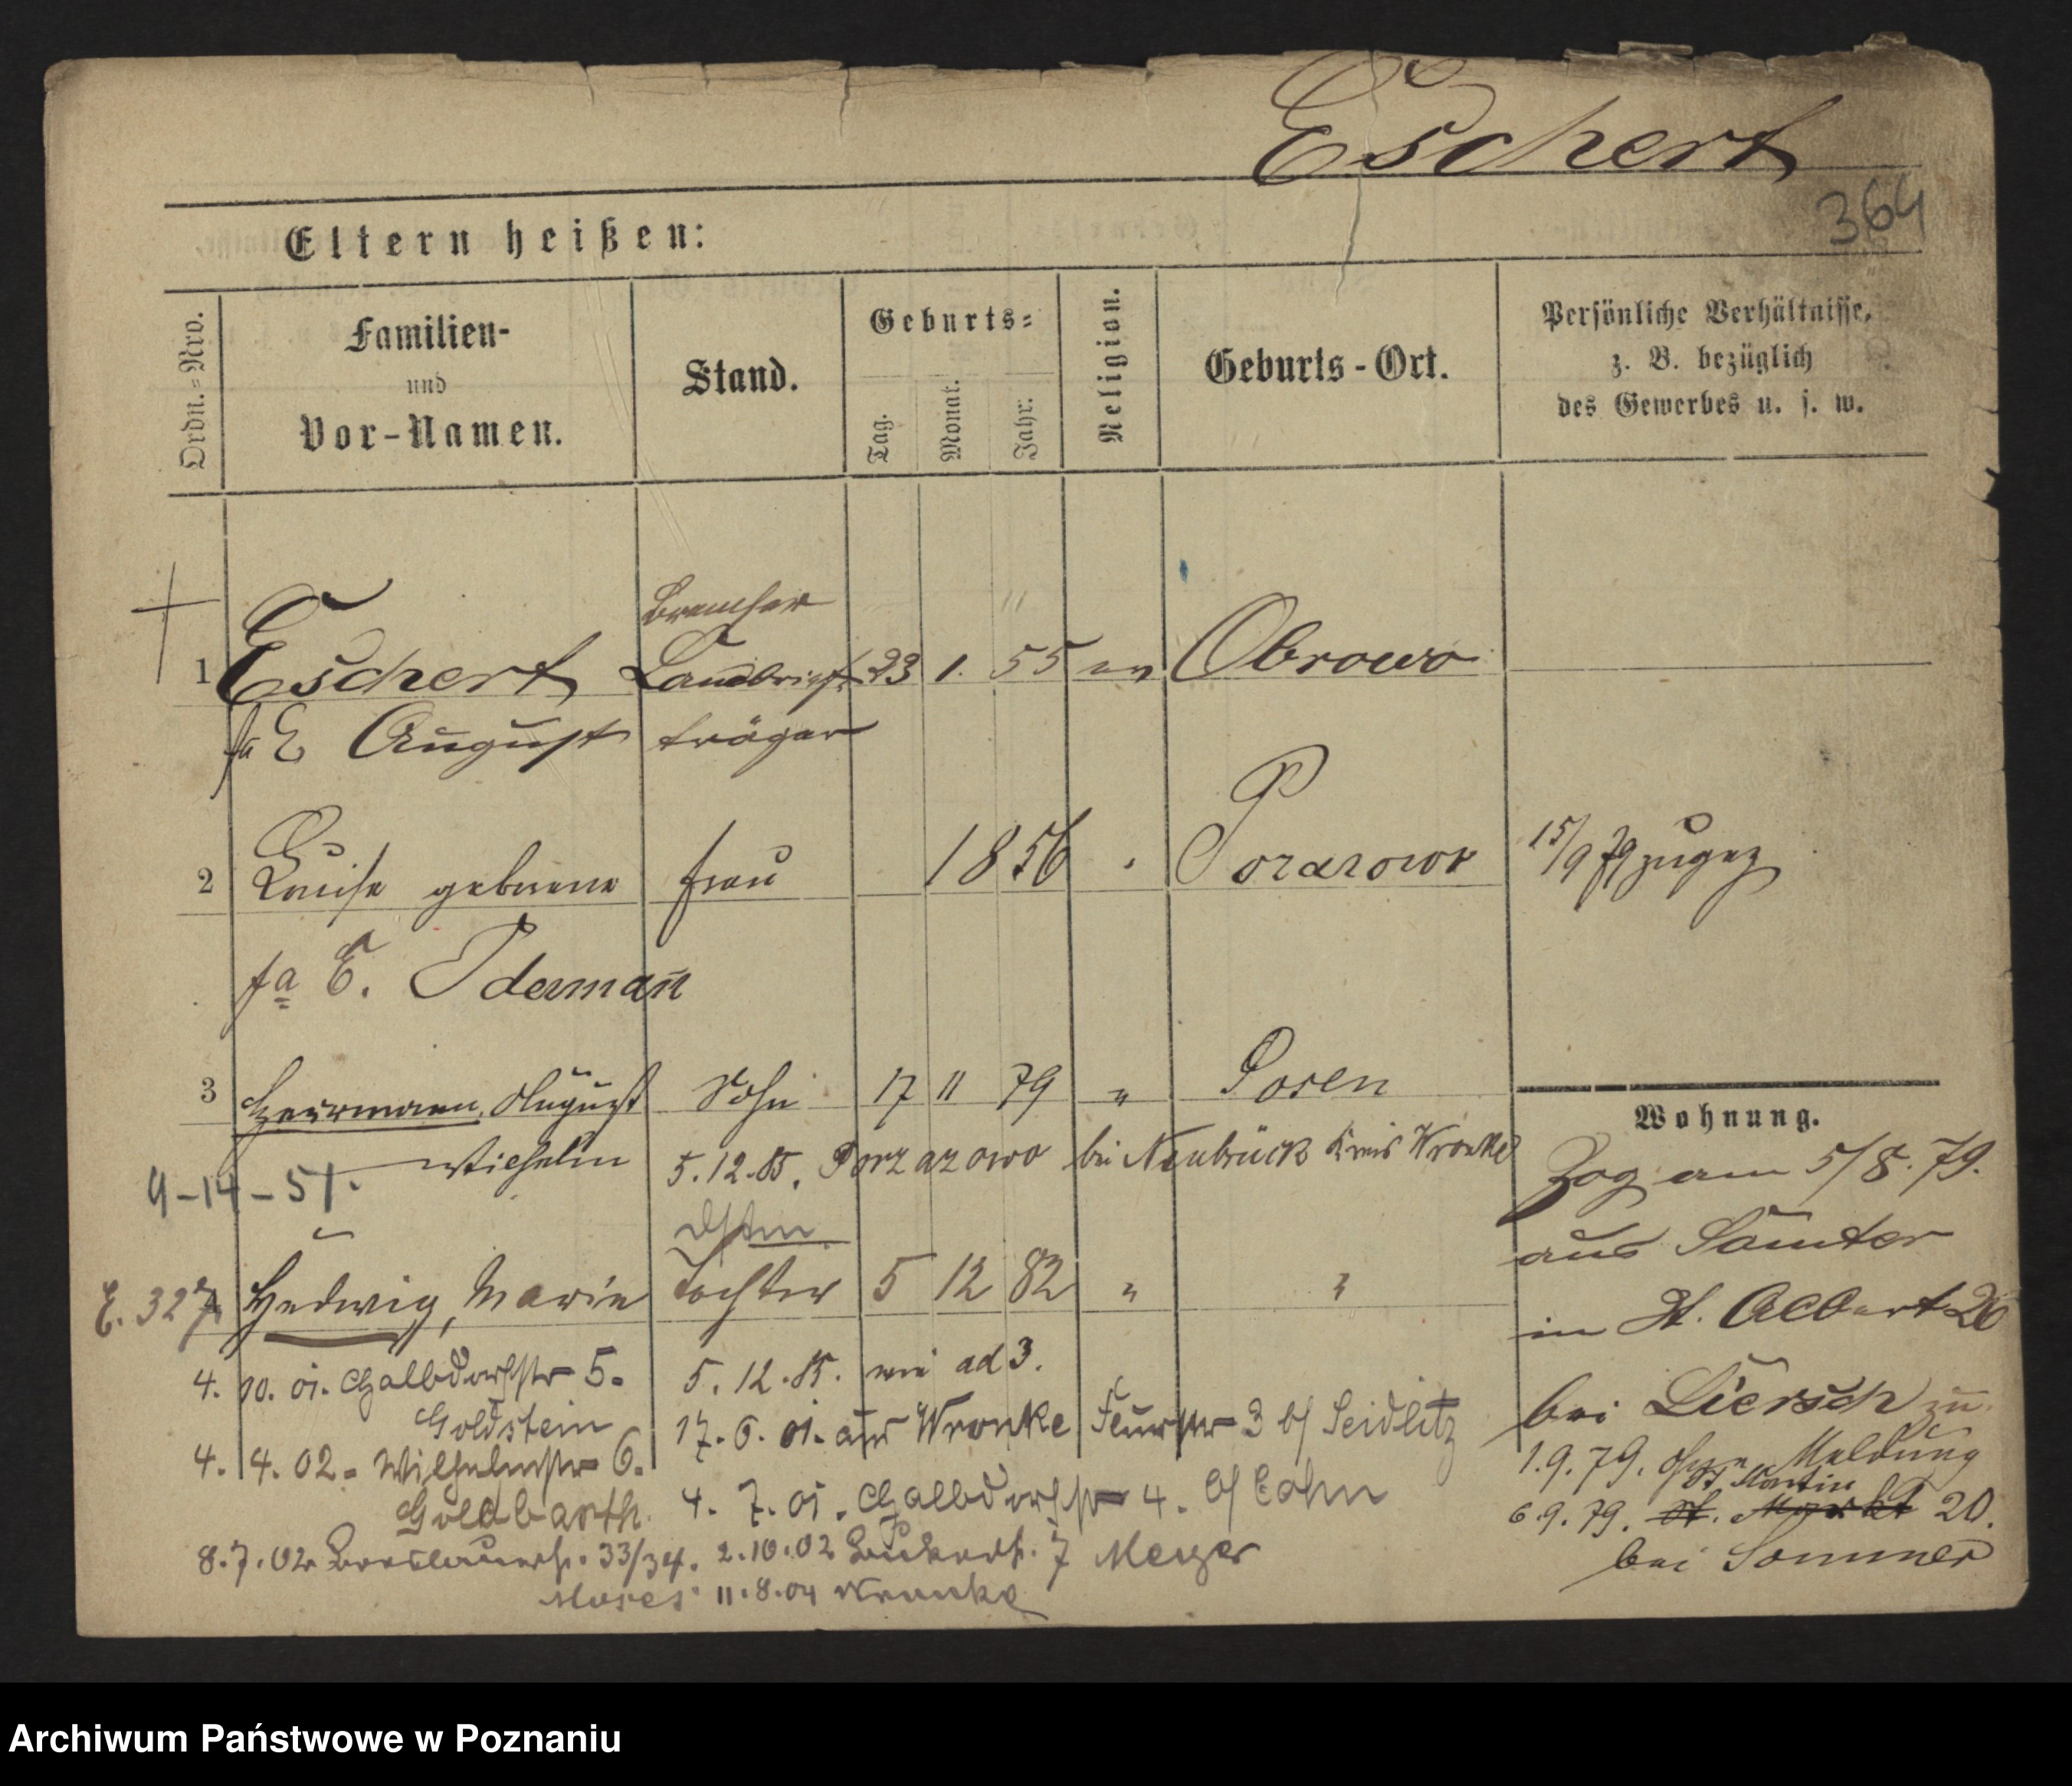 Eschert
364
Eltern heißen:
Ordn.=Nro.
Familien-
und
Vor-Namen.
Stand.
Geburts=
Tag.
Monat.
Jahr:
Religion.
Geburts-Ort.
Persönliche Verhältnisse,
z. B. bezüglich
des Gewerbes u. s. w.
1 Eschert Landbrief 23 1. 55 ev Obrowo
August träger
2 Louise geborene Frau 1856 Porazowo 15/9 79 zugez
fa E. Idermañ
3 Herrmann August Sohn 17 11 79 " Posen
Wilhelm 5.12.85. Porzazowo bei Neubrück Kreis Wronke
9-14-51.
E. 327 Hedwig, Marie Tochter 5 12 82 " "
4. 10. 01. Halbdorfstr 5. 5. 12. 85. wie ad 3.
Goldstein 17. 6. 01. aus Wronke 3 b/ Seidlitz
4. 4. 02. Wilhelmstr 6. 4. 7. 01. Halbdorfstr 4. b/ Cohn
Goldbarth.
8.7.02 Breslauerstr. 33/34. 2.10.02 7 Meyer
Moses 11.8.04 Wronke
Wohnung.
Zog am 5/8. 79.
aus Samter
in St. Adbert 20
bei Liersch zu.
1.9.79. ohne Meldung
St. Martin
6.9.79. St. Markt 20.
bei Sommer
Archiwum Państwowe w Poznaniu